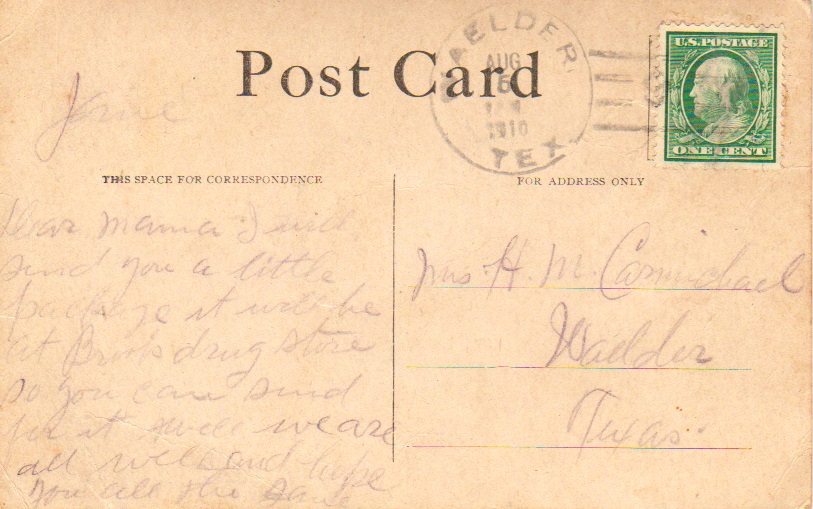 Post Card
WAELDER
AUG
5
1910
TEX.
U.S. POSTAGE
ONE CENT
Jane
THIS SPACE FOR CORRESPONDENCE
FOR ADDRESS ONLY
Dear Mama I will
send you a little
package it will be
at drug store
so you can send
for it well we are
all well and hope
you all the same
Mrs. H. M. Carmichael
Waelder
Texas.